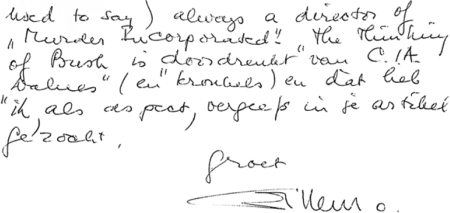 used to say) always a director of
"Murder Incorporated"! the thinking
of Bush is doordrenkt van C.I.A
values" (en "kronkels) en dat heb
"ik, als aspect, vergeefs in je artikel
gezocht,
groet
Willem o.